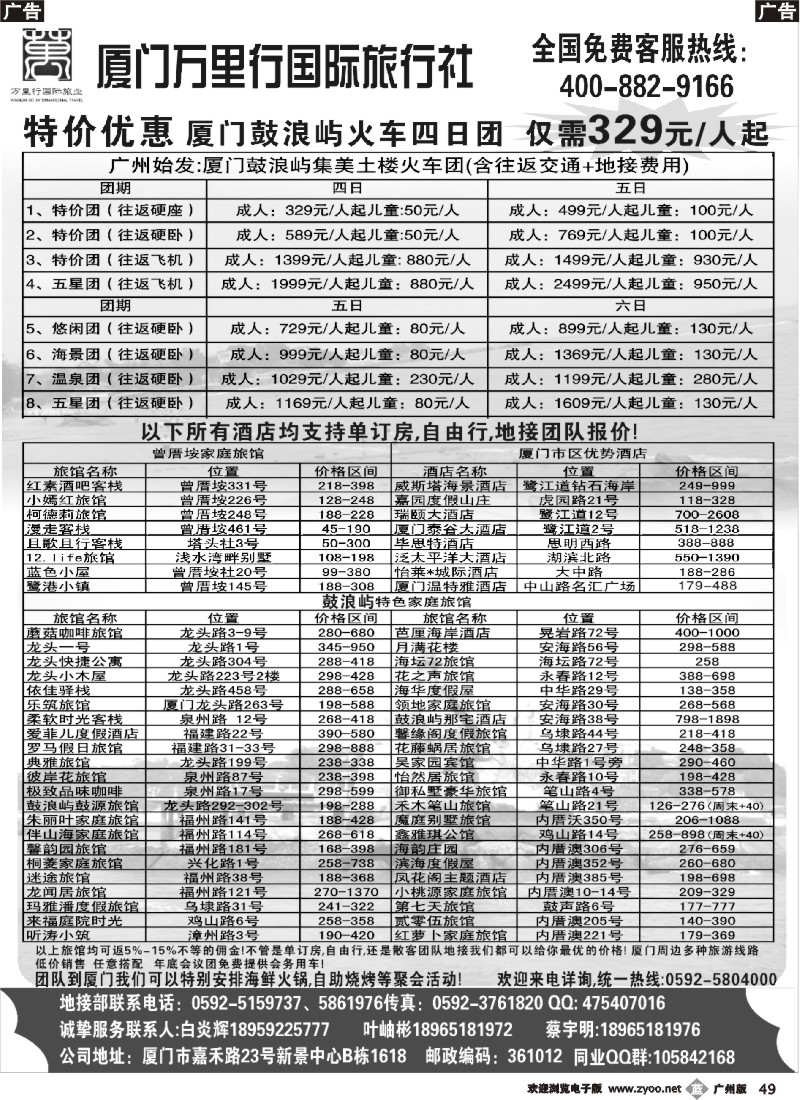 广告 广告
万里行国际旅业
厦门万里行国际旅行社
全国免费客服热线:
400-882-9166
特价优惠 厦门鼓浪屿火车四日团 仅需329元/人起
广州始发:厦门鼓浪屿集美土楼火车团(含往返交通+地接费用)
团期 四日 五日
1、特价团(往返硬座) 成人:329元/人起儿童:50元/人 成人:499元/人起儿童:100元/人
2、特价团(往返硬卧) 成人:589元/人起儿童:50元/人 成人:769元/人起儿童:100元/人
3、特价团(往返飞机) 成人:1399元/人起儿童:880元/人 成人:1499元/人起儿童:930元/人
4、五星团(往返飞机) 成人:1999元/人起儿童:880元/人 成人:2499元/人起儿童:950元/人
团期 五日 六日
5、悠闲团(往返硬卧) 成人:729元/人起儿童:80元/人 成人:899元/人起儿童:130元/人
6、海景团(往返硬卧) 成人:999元/人起儿童:80元/人 成人:1369元/人起儿童:130元/人
7、温泉团(往返硬卧) 成人:1029元/人起儿童:230元/人 成人:1199元/人起儿童:280元/人
8、五星团(往返硬卧) 成人:1169元/人起儿童:80元/人 成人:1609元/人起儿童:130元/人
以下所有酒店均支持单订房,自由行,地接团队报价!
曾厝垵家庭旅馆 厦门市区优势酒店
旅馆名称 位置 价格区间 酒店名称 位置 价格区间
红素酒吧客栈 曾厝垵331号 218-398 威斯塔海景酒店 鹭江道钻石海岸 249-999
小嫣红旅馆 曾厝垵226号 128-248 嘉园度假山庄 虎园路21号 118-328
柯德莉旅馆 曾厝垵248号 188-228 瑞颐大酒店 鹭江道12号 700-2608
漫走客栈 曾厝垵461号 45-190 厦门泰谷大酒店 鹭江道2号 518-1238
且歌且行客栈 塔头社3号 50-300 毕思特酒店 思明西路 388-888
12.life旅馆 浅水湾畔别墅 108-198 泛太平洋大酒店 湖滨北路 550-1390
蓝色小屋 曾厝垵社20号 99-380 怡莱*城际酒店 大中路 188-286
鹭港小镇 曾厝垵145号 188-308 厦门温特雅酒店 中山路名汇广场 179-488
鼓浪屿特色家庭旅馆
旅馆名称 位置 价格区间 旅馆名称 位置 价格区间
蘑菇咖啡旅馆 龙头路3-9号 280-680 芭厘海岸酒店 晃岩路72号 400-1000
龙头一号 龙头路1号 345-950 月满花楼 安海路56号 298-588
龙头快捷公寓 龙头路304号 288-418 海坛72旅馆 海坛路72号 258
龙头小木屋 龙头路223号2楼 298-428 花之声旅馆 永春路12号 388-698
依佳驿栈 龙头路458号 288-658 海华度假屋 中华路29号 138-358
乐筑旅馆 厦门龙头路263号 198-588 领地家庭旅馆 安海路30号 268-568
柔软时光客栈 泉州路 12号 268-418 鼓浪屿那宅酒店 安海路38号 798-1898
爱菲儿度假酒店 福建路22号 390-580 馨缘阁度假旅馆 乌埭路44号 218-418
罗马假日旅馆 福建路31-33号 298-888 花藤蜗居旅馆 乌埭路27号 248-358
典雅旅馆 龙头路199号 238-338 吴家园宾馆 中华路1号旁 290-460
彼岸花旅馆 泉州路87号 238-398 怡然居旅馆 永春路10号 198-428
极致品味咖啡 泉州路17号 298-599 御私墅豪华旅馆 笔山路4号 338-578
鼓浪屿鼓源旅馆 龙头路292-302号 198-288 禾木笔山旅馆 笔山路21号 126-276(周末+40)
朱丽叶家庭旅馆 福州路141号 188-428 魔庭别墅旅馆 内厝沃350号 206-1088
伴山海家庭旅馆 福州路114号 268-618 鑫雅琪公馆 鸡山路14号 258-898(周末+40)
馨韵园旅馆 福州路181号 168-398 海韵庄园 内厝澳306号 276-659
桐菱家庭旅馆 兴化路1号 258-738 滨海度假屋 内厝澳352号 260-680
迷途旅馆 福州路38号 188-368 凤花阁主题酒店 内厝澳385号 198-698
龙闻居旅馆 福州路121号 270-1370 小桃源家庭旅馆 内厝澳10-14号 209-329
玛雅潘度假旅馆 乌埭路31号 241-322 第七天旅馆 鼓声路6号 177-777
来福庭院时光 鸡山路6号 258-358 贰零伍旅馆 内厝澳205号 140-390
听涛小筑 漳州路3号 190-420 红萝卜家庭旅馆 内厝澳221号 179-369
以上旅馆均可返5%-15%不等的佣金!不管是单订房,自由行,还是散客团队地接我们都可以给你最优的价格!厦门周边多种旅游线路
低价销售 任意搭配 年底会议团免费提供会务用车!
团队到厦门我们可以特别安排海鲜火锅,自助烧烤等聚会活动! 欢迎来电详询,统一热线:0592-5804000
地接部联系电话:0592-5159737、5861976传真:0592-3761820 QQ:475407016
诚挚服务联系人:白炎辉18959225777 叶岫彬18965181972 蔡宇明:18965181976
公司地址:厦门市嘉禾路23号新景中心B栋1618 邮政编码:361012 同业QQ群:105842168
欢迎浏览电子版 www.zyoo.net 蓝 广州版 49